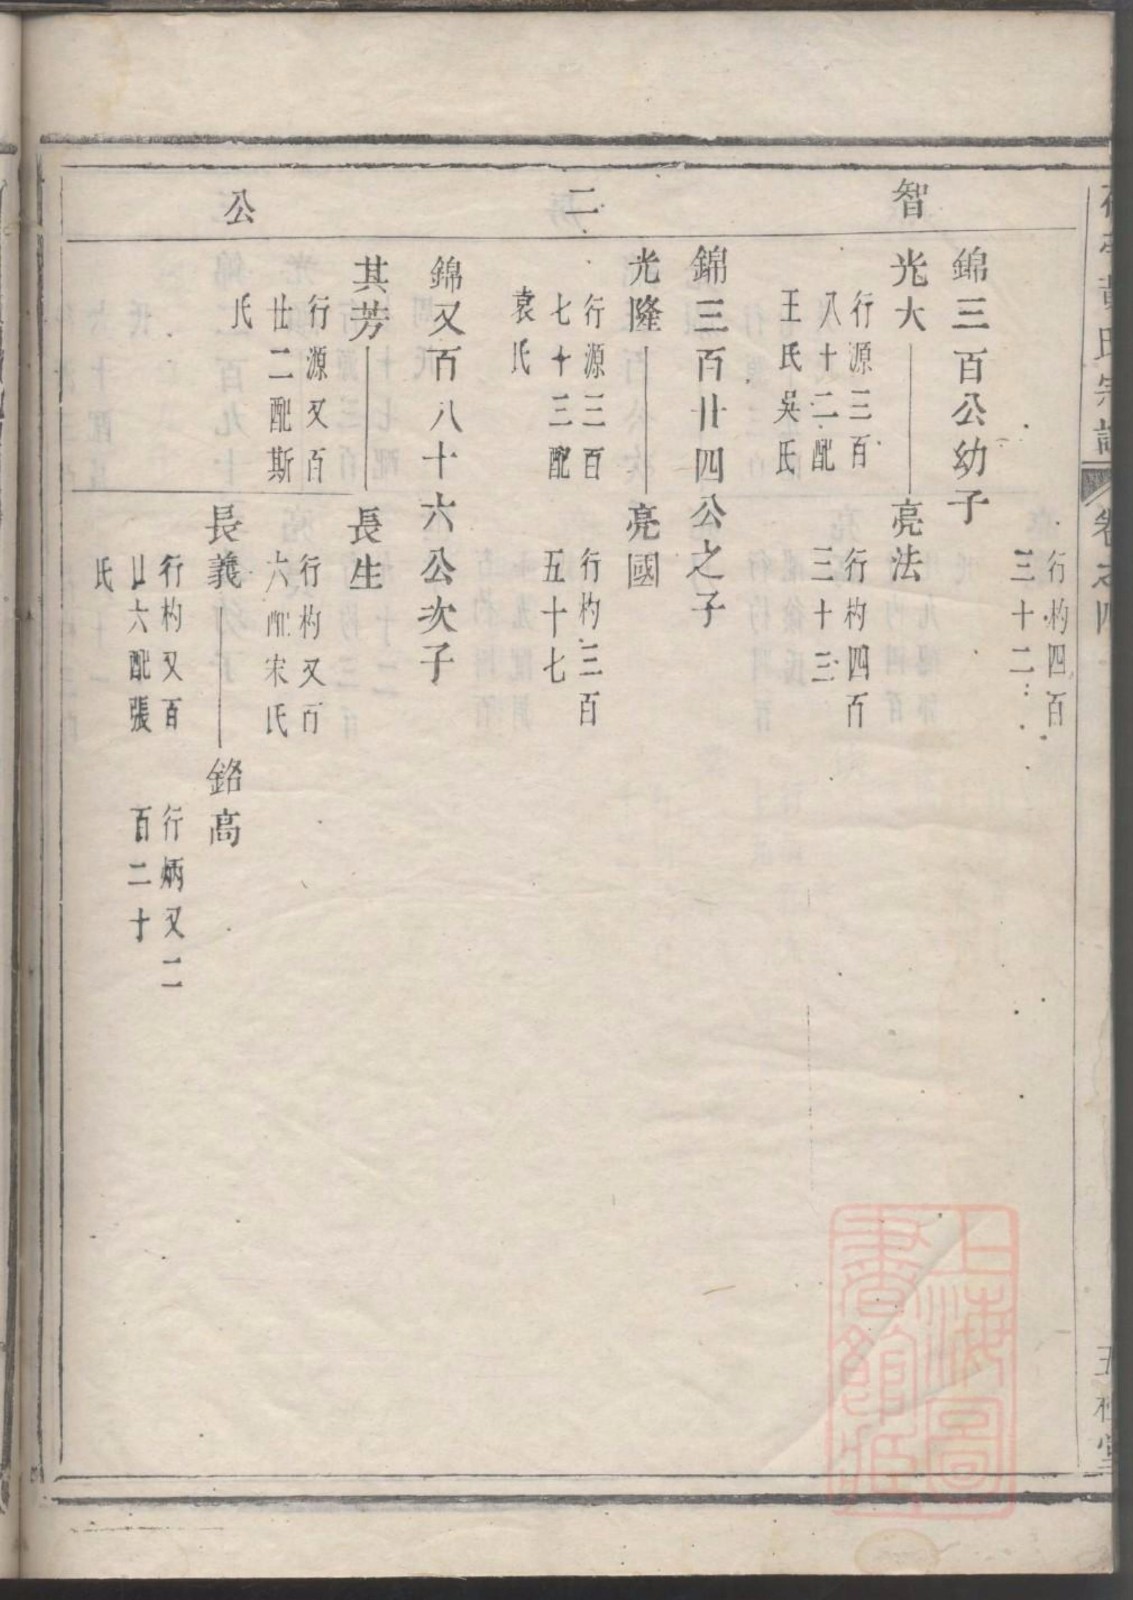 黃氏宗譜
卷之四
智
二
公
行杓四百
三十二
錦三百公幼子
光大
行源三百
八十二配
王氏吳氏
亮法
行杓四百
三十三
錦三百廿四公之子
光隆
行源三百
七十三配
袁氏
亮國
行杓三百
五十七
錦又百八十六公次子
其芳
行源又百
廿二配斯
氏
長生
行杓又百
六配宋氏
長義
行杓又百
廿六配張
氏
銘高
行炳又二
百二十
上海圖
書館藏